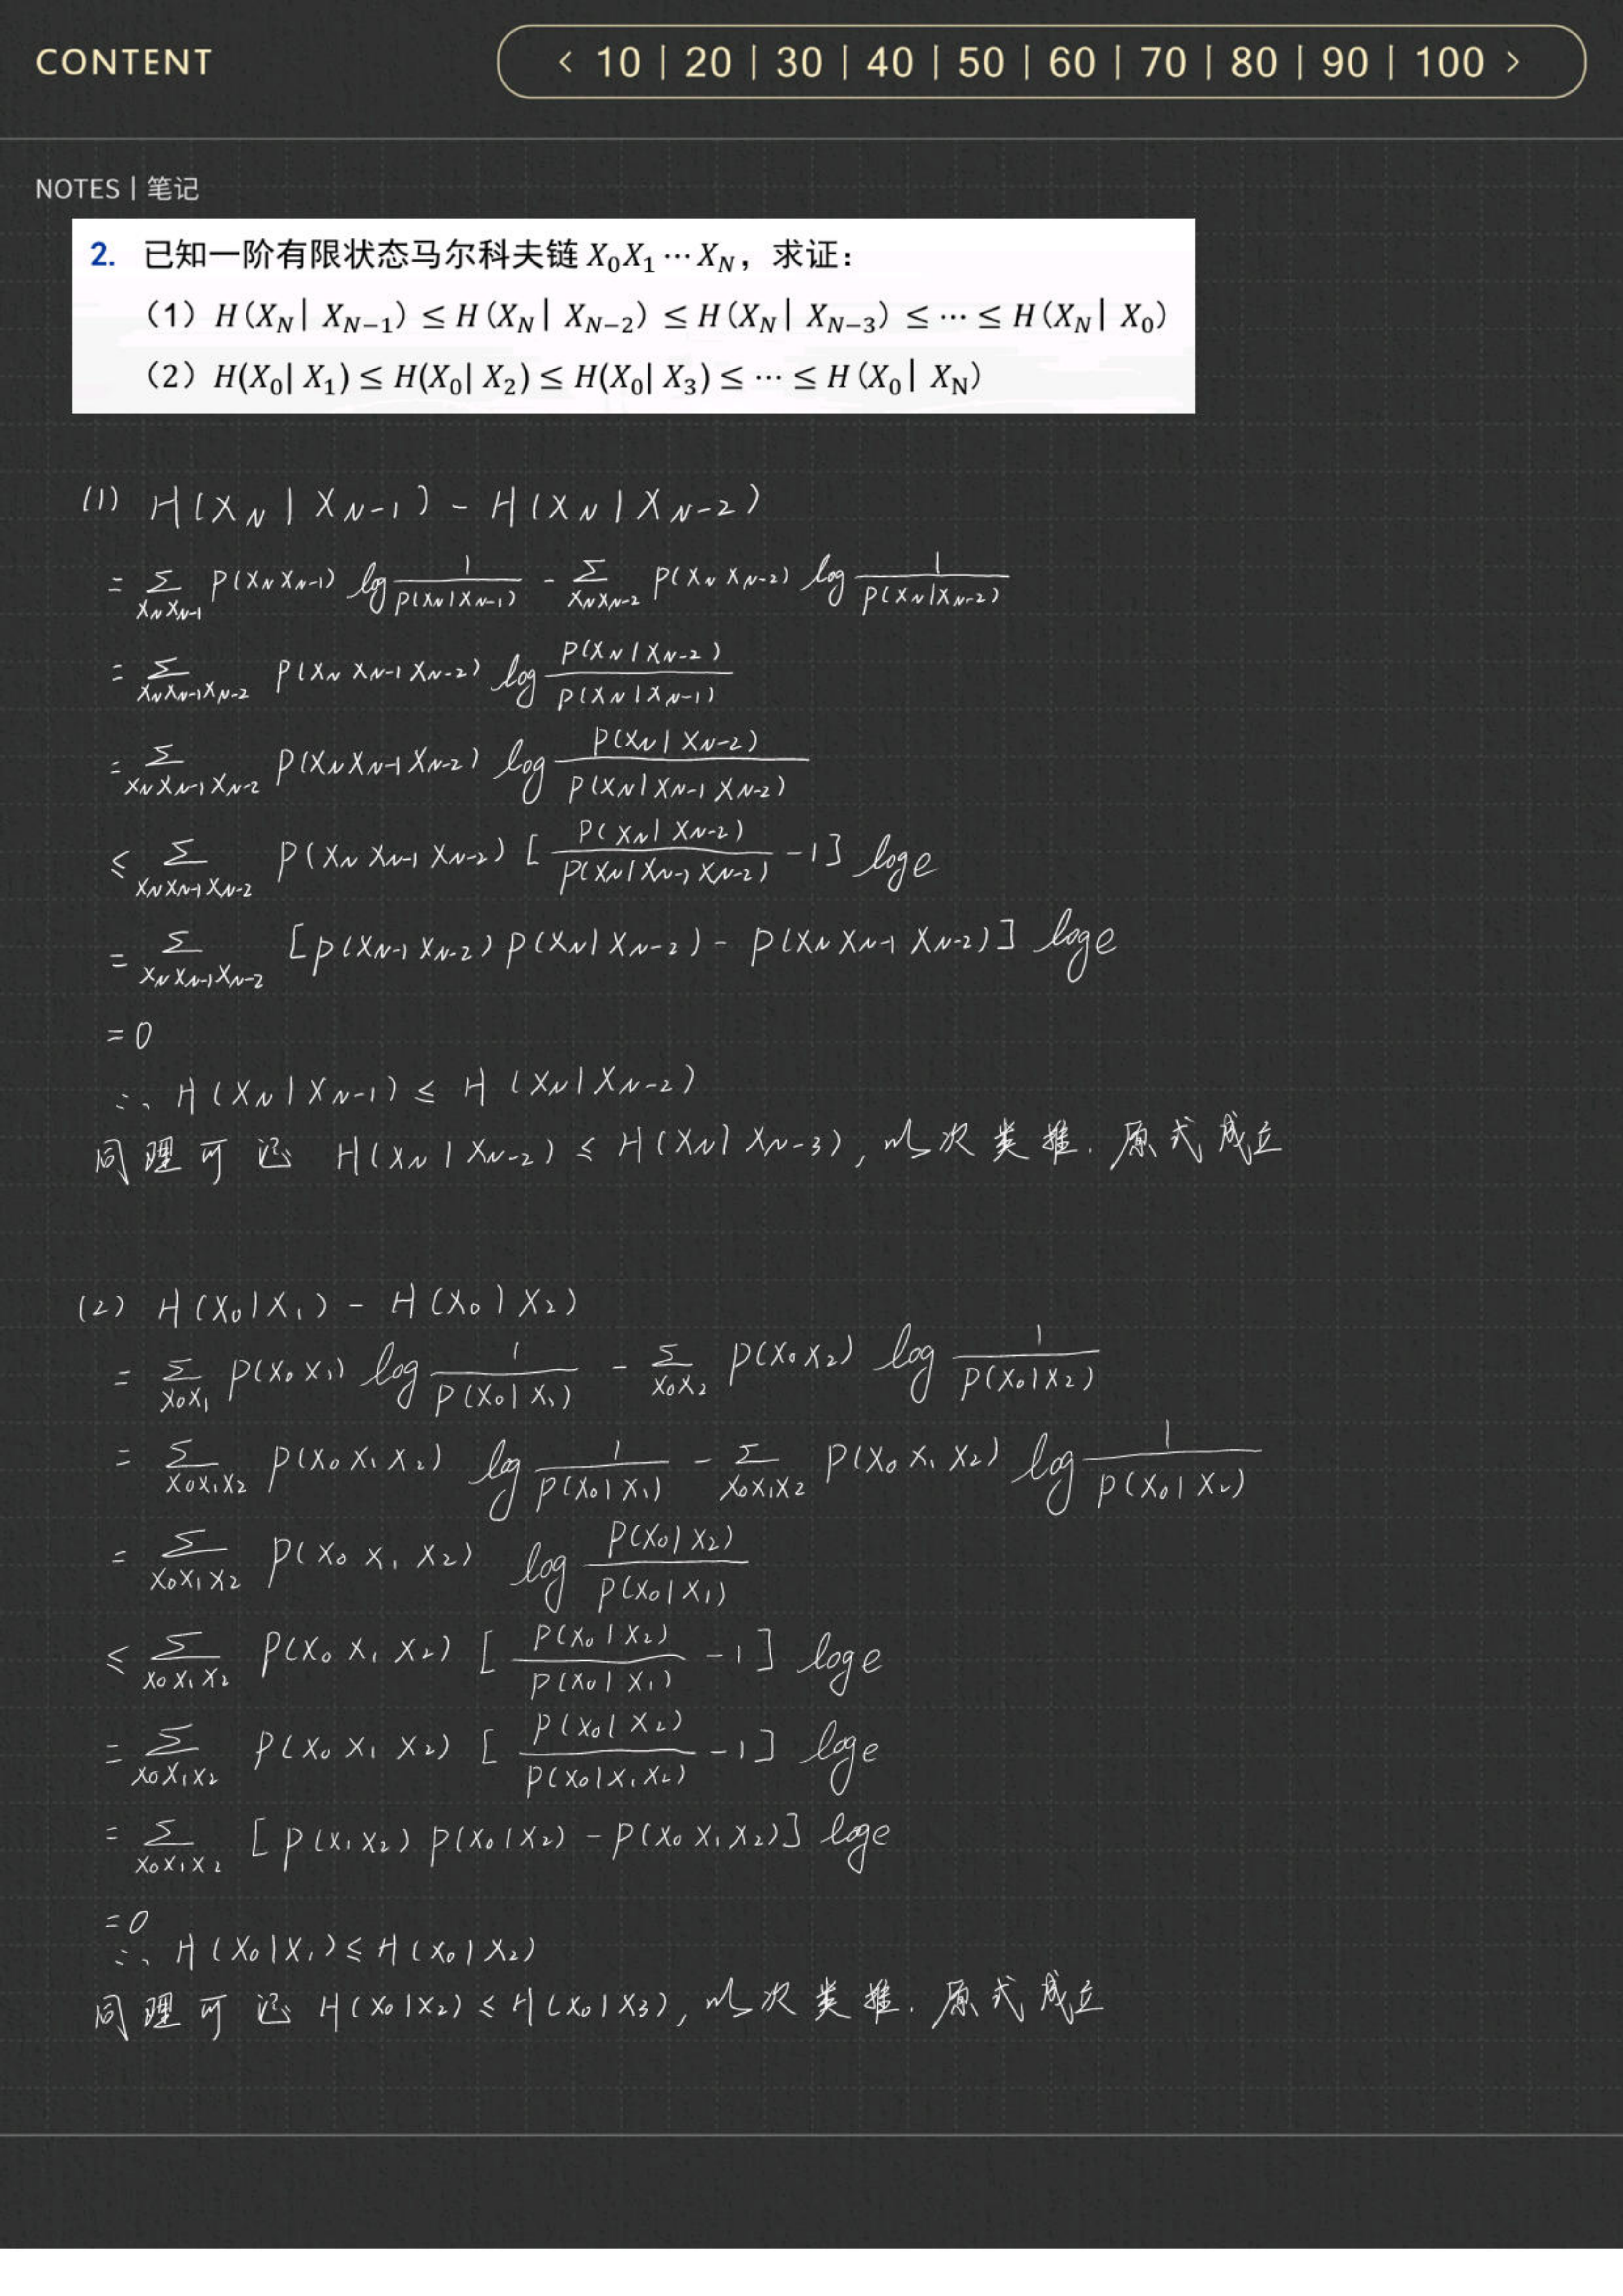 CONTENT
< 10 | 20 | 30 | 40 | 50 | 60 | 70 | 80 | 90 | 100 >
NOTES | 笔记
2. 已知一阶有限状态马尔科夫链 X₀X₁ ⋯ X_N，求证：
（1）H(X_N | X_{N−1}) ≤ H(X_N | X_{N−2}) ≤ H(X_N | X_{N−3}) ≤ ⋯ ≤ H(X_N | X₀)
（2）H(X₀| X₁) ≤ H(X₀| X₂) ≤ H(X₀| X₃) ≤ ⋯ ≤ H(X₀ | X_N)
(1) H(X_N | X_{N-1}) - H(X_N | X_{N-2})
= Σ_{X_N X_{N-1}} P(X_N X_{N-1}) log 1/P(X_N | X_{N-1}) - Σ_{X_N X_{N-2}} P(X_N X_{N-2}) log 1/P(X_N | X_{N-2})
= Σ_{X_N X_{N-1} X_{N-2}} P(X_N X_{N-1} X_{N-2}) log P(X_N | X_{N-2})/P(X_N | X_{N-1})
= Σ_{X_N X_{N-1} X_{N-2}} P(X_N X_{N-1} X_{N-2}) log P(X_N | X_{N-2})/P(X_N | X_{N-1} X_{N-2})
≤ Σ_{X_N X_{N-1} X_{N-2}} P(X_N X_{N-1} X_{N-2}) [P(X_N | X_{N-2})/P(X_N | X_{N-1} X_{N-2}) - 1] log e
= Σ_{X_N X_{N-1} X_{N-2}} [P(X_{N-1} X_{N-2}) P(X_N | X_{N-2}) - P(X_N X_{N-1} X_{N-2})] log e
= 0
∴ H(X_N | X_{N-1}) ≤ H(X_N | X_{N-2})
同理可证 H(X_N | X_{N-2}) ≤ H(X_N | X_{N-3}), 以次类推. 原式成立
(2) H(X₀ | X₁) - H(X₀ | X₂)
= Σ_{X₀X₁} P(X₀X₁) log 1/P(X₀ | X₁) - Σ_{X₀X₂} P(X₀X₂) log 1/P(X₀ | X₂)
= Σ_{X₀X₁X₂} P(X₀X₁X₂) log 1/P(X₀ | X₁) - Σ_{X₀X₁X₂} P(X₀X₁X₂) log 1/P(X₀ | X₂)
= Σ_{X₀X₁X₂} P(X₀X₁X₂) log P(X₀ | X₂)/P(X₀ | X₁)
≤ Σ_{X₀X₁X₂} P(X₀X₁X₂) [P(X₀ | X₂)/P(X₀ | X₁) - 1] log e
= Σ_{X₀X₁X₂} P(X₀X₁X₂) [P(X₀ | X₂)/P(X₀ | X₁X₂) - 1] log e
= Σ_{X₀X₁X₂} [P(X₁X₂) P(X₀ | X₂) - P(X₀X₁X₂)] log e
= 0
∴ H(X₀ | X₁) ≤ H(X₀ | X₂)
同理可证 H(X₀ | X₂) ≤ H(X₀ | X₃), 以次类推. 原式成立